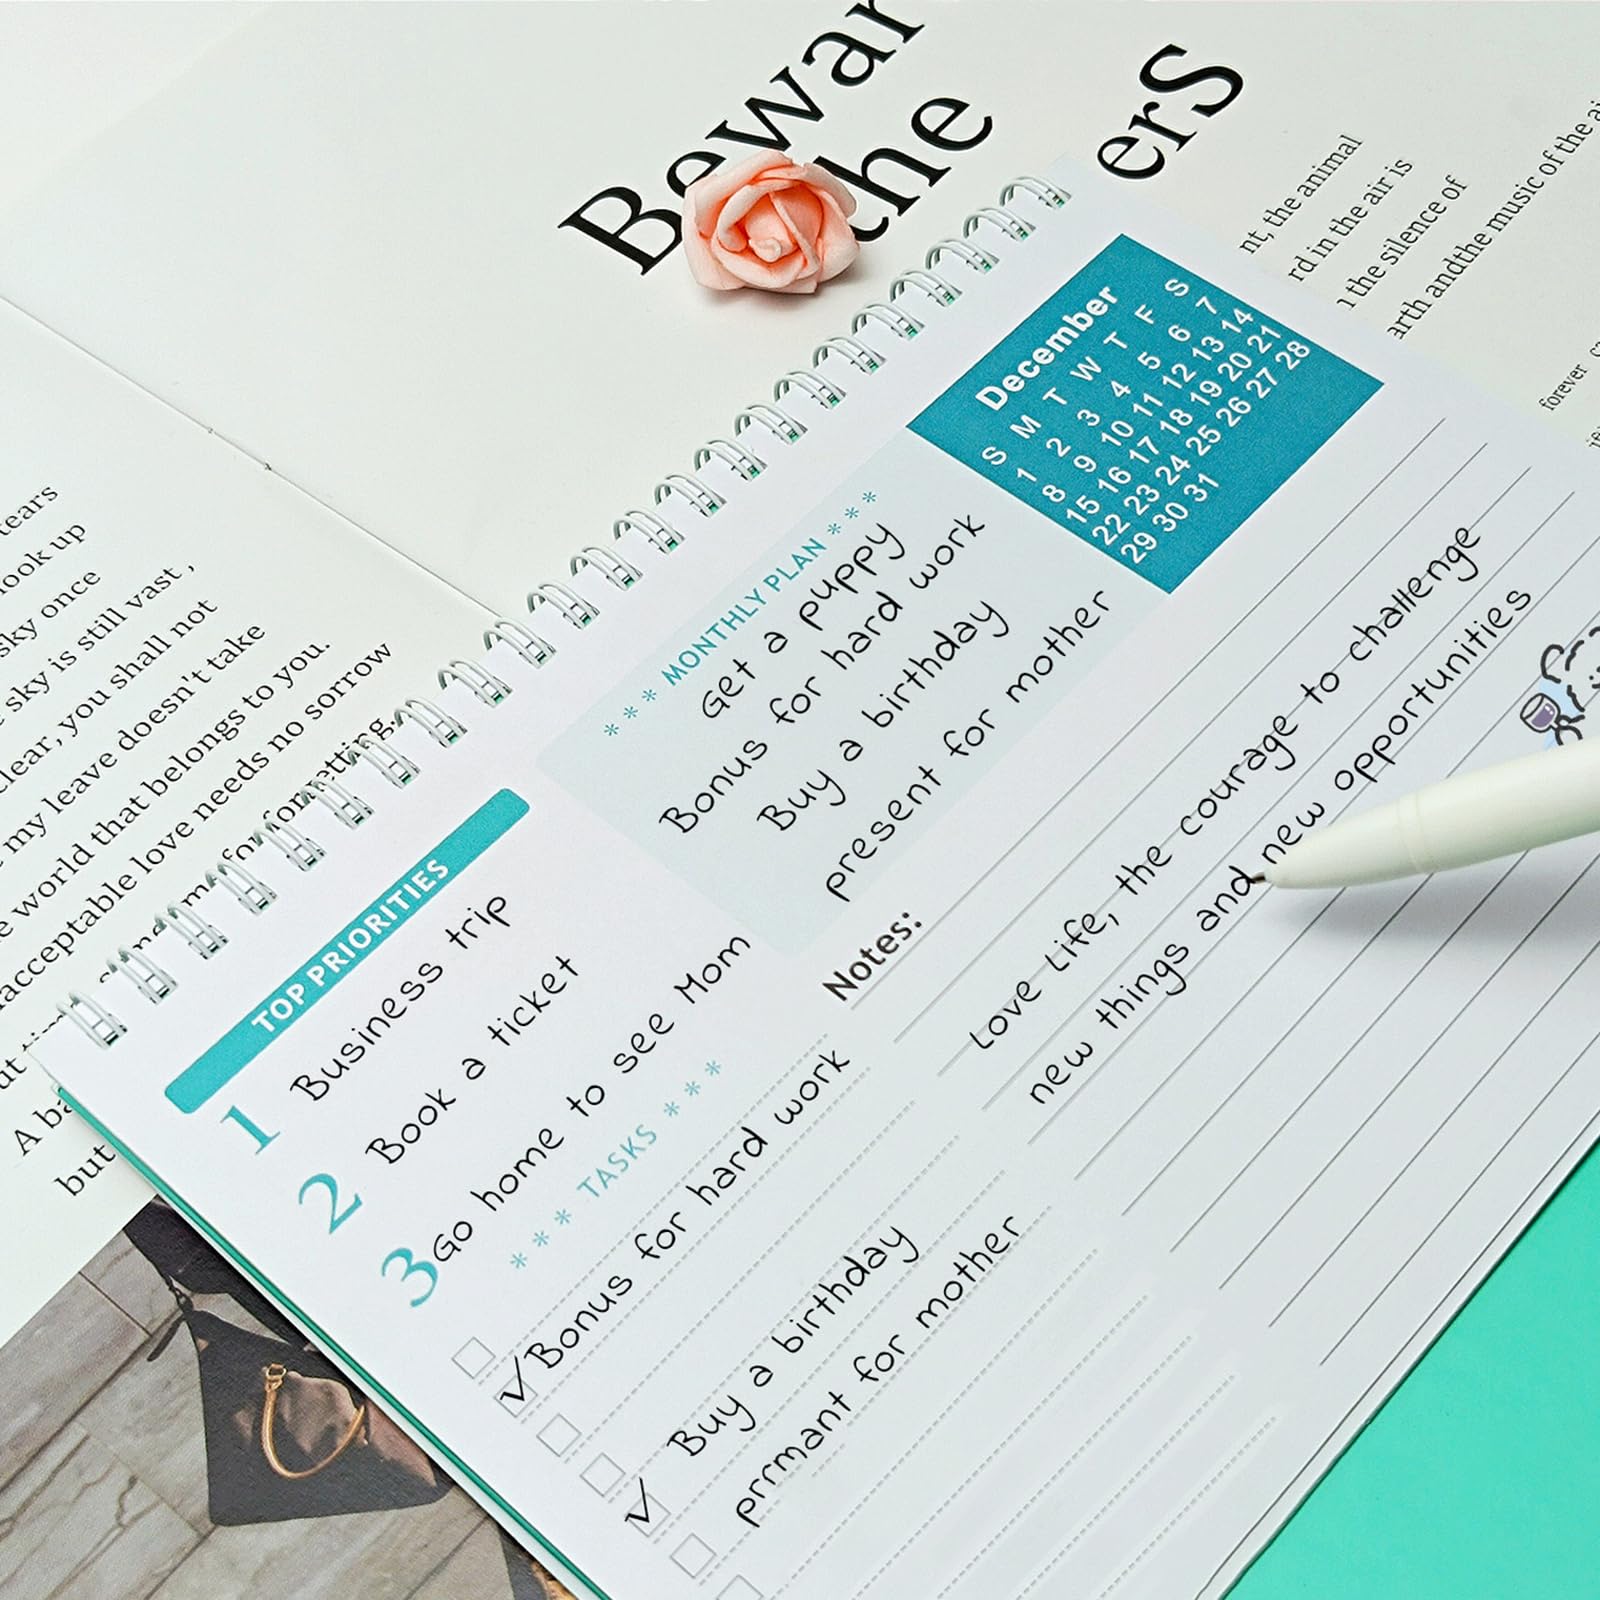 Bewar
the
erS
nt, the animal
rd in the air is
the silence of
arth andthe music of the
forever
tears
look up
sky once
sky is still vast ,
lear, you shall not
my leave doesn't take
world that belongs to you.
acceptable love needs no sorrow
for forgetting.
A
but
December
S M T W T F S
1 2 3 4 5 6 7
8 9 10 11 12 13 14
15 16 17 18 19 20 21
22 23 24 25 26 27 28
29 30 31
*** MONTHLY PLAN ***
Get a puppy
Bonus for hard work
Buy a birthday
present for mother
TOP PRIORITIES
1 Business trip
2 Book a ticket
3 Go home to see Mom
*** TASKS ***
✓ Bonus for hard work
✓ Buy a birthday
prrmant for mother
Notes:
Love Life, the courage to challenge
new things and new opportunities